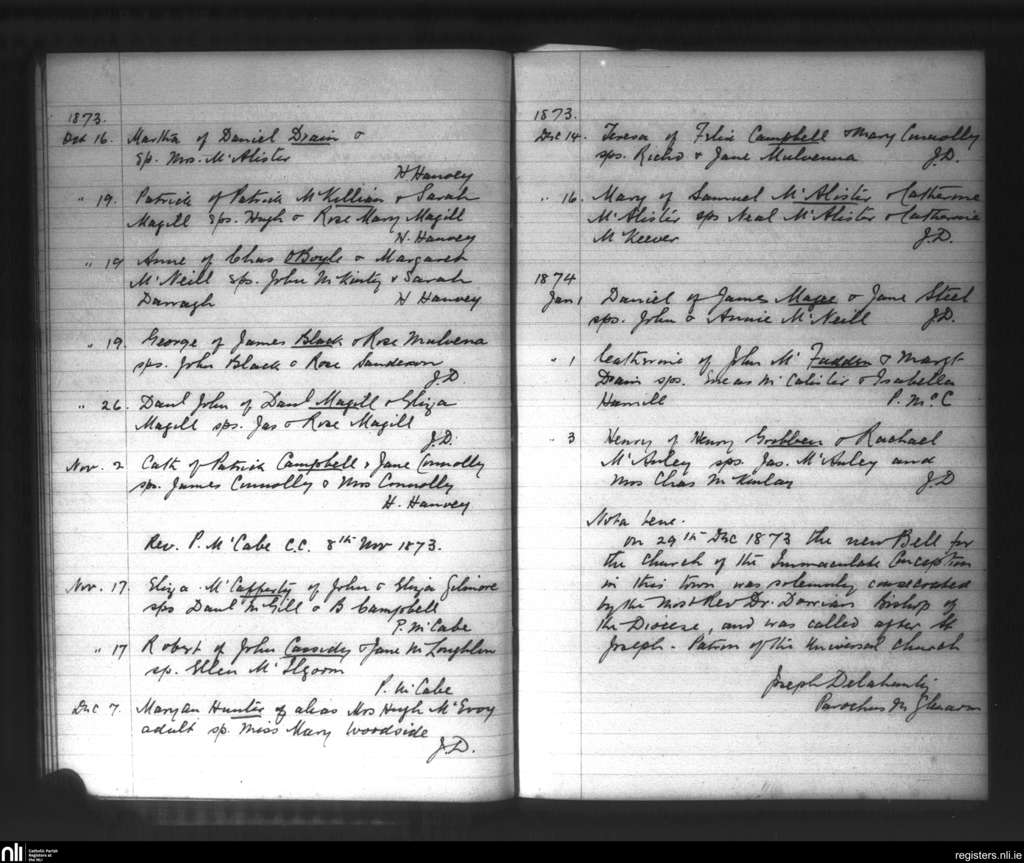 1873.
Oct 16. Martha of Daniel Drain &
Sp. Mrs. McAlister
H Hanvey
" 19. Patrick of Patrick McKillian & Sarah
Magill sps. Hugh & Rose Mary Magill
H. Hanvey
" 19 Anne of Chas O'Boyle & Margaret
McNeill sps. John McKinty & Sarah
Darragh H Hanvey
" 19. George of James Black & Rose Mulvena
sps. John Black & Rose Sanderson
J.D.
" 26. Danl John of Danl Magill & Eliza
Magill sps. Jas & Rose Magill
J.D.
Nov. 2 Cath of Patrick Campbell & Jane Connolly
sps. James Connolly & Mrs Connolly
H. Hanvey
Rev. P. McCabe C.C. 8th Nov 1873.
Nov. 17. Eliza McCafferty of John & Eliza Gilmore
sps Danl McGill & B Campbell
P. McCabe
" 17 Robert of John Cassidy & Jane McLoughlin
sp. Ellen McElgorm
P. McCabe
Dec 7. Maryan Hunter of alias Mrs Hugh McEvoy
adult sp. Miss Mary Woodside
J.D.
1873.
Dec 14. Teresa of Felix Campbell & Mary Connolly
sps. Richd & Jane Mulvenna J.D.
" 16. Mary of Samuel McAlister & Catherine
McAlister sps Neal McAlister & Catherine
McKeever J.D.
1874
Jan 1 Daniel of James Magee & Jane Steel
sps. John & Annie McNeill J.D.
" 1 Catherine of John McFadden & Margt
Drain sps. Eneas McCalister & Isabella
Hamill P. McC
" 3 Henry of Henry Gribben & Rachael
McAuley sps. Jas. McAuley and
Mrs Chas McKinlay J.D
Nota bene.
On 29th Dec 1873 the new Bell for
the church of the Immaculate Conception
in this town was solemnly consecrated
by the Most Rev Dr. Dorrian Bishop of
the Diocese, and was called after St
Joseph - Patron of the Universal Church
Joseph Delahunty
Parochus in Glenarm
nli Catholic Parish
Registers at
the NLI
registers.nli.ie